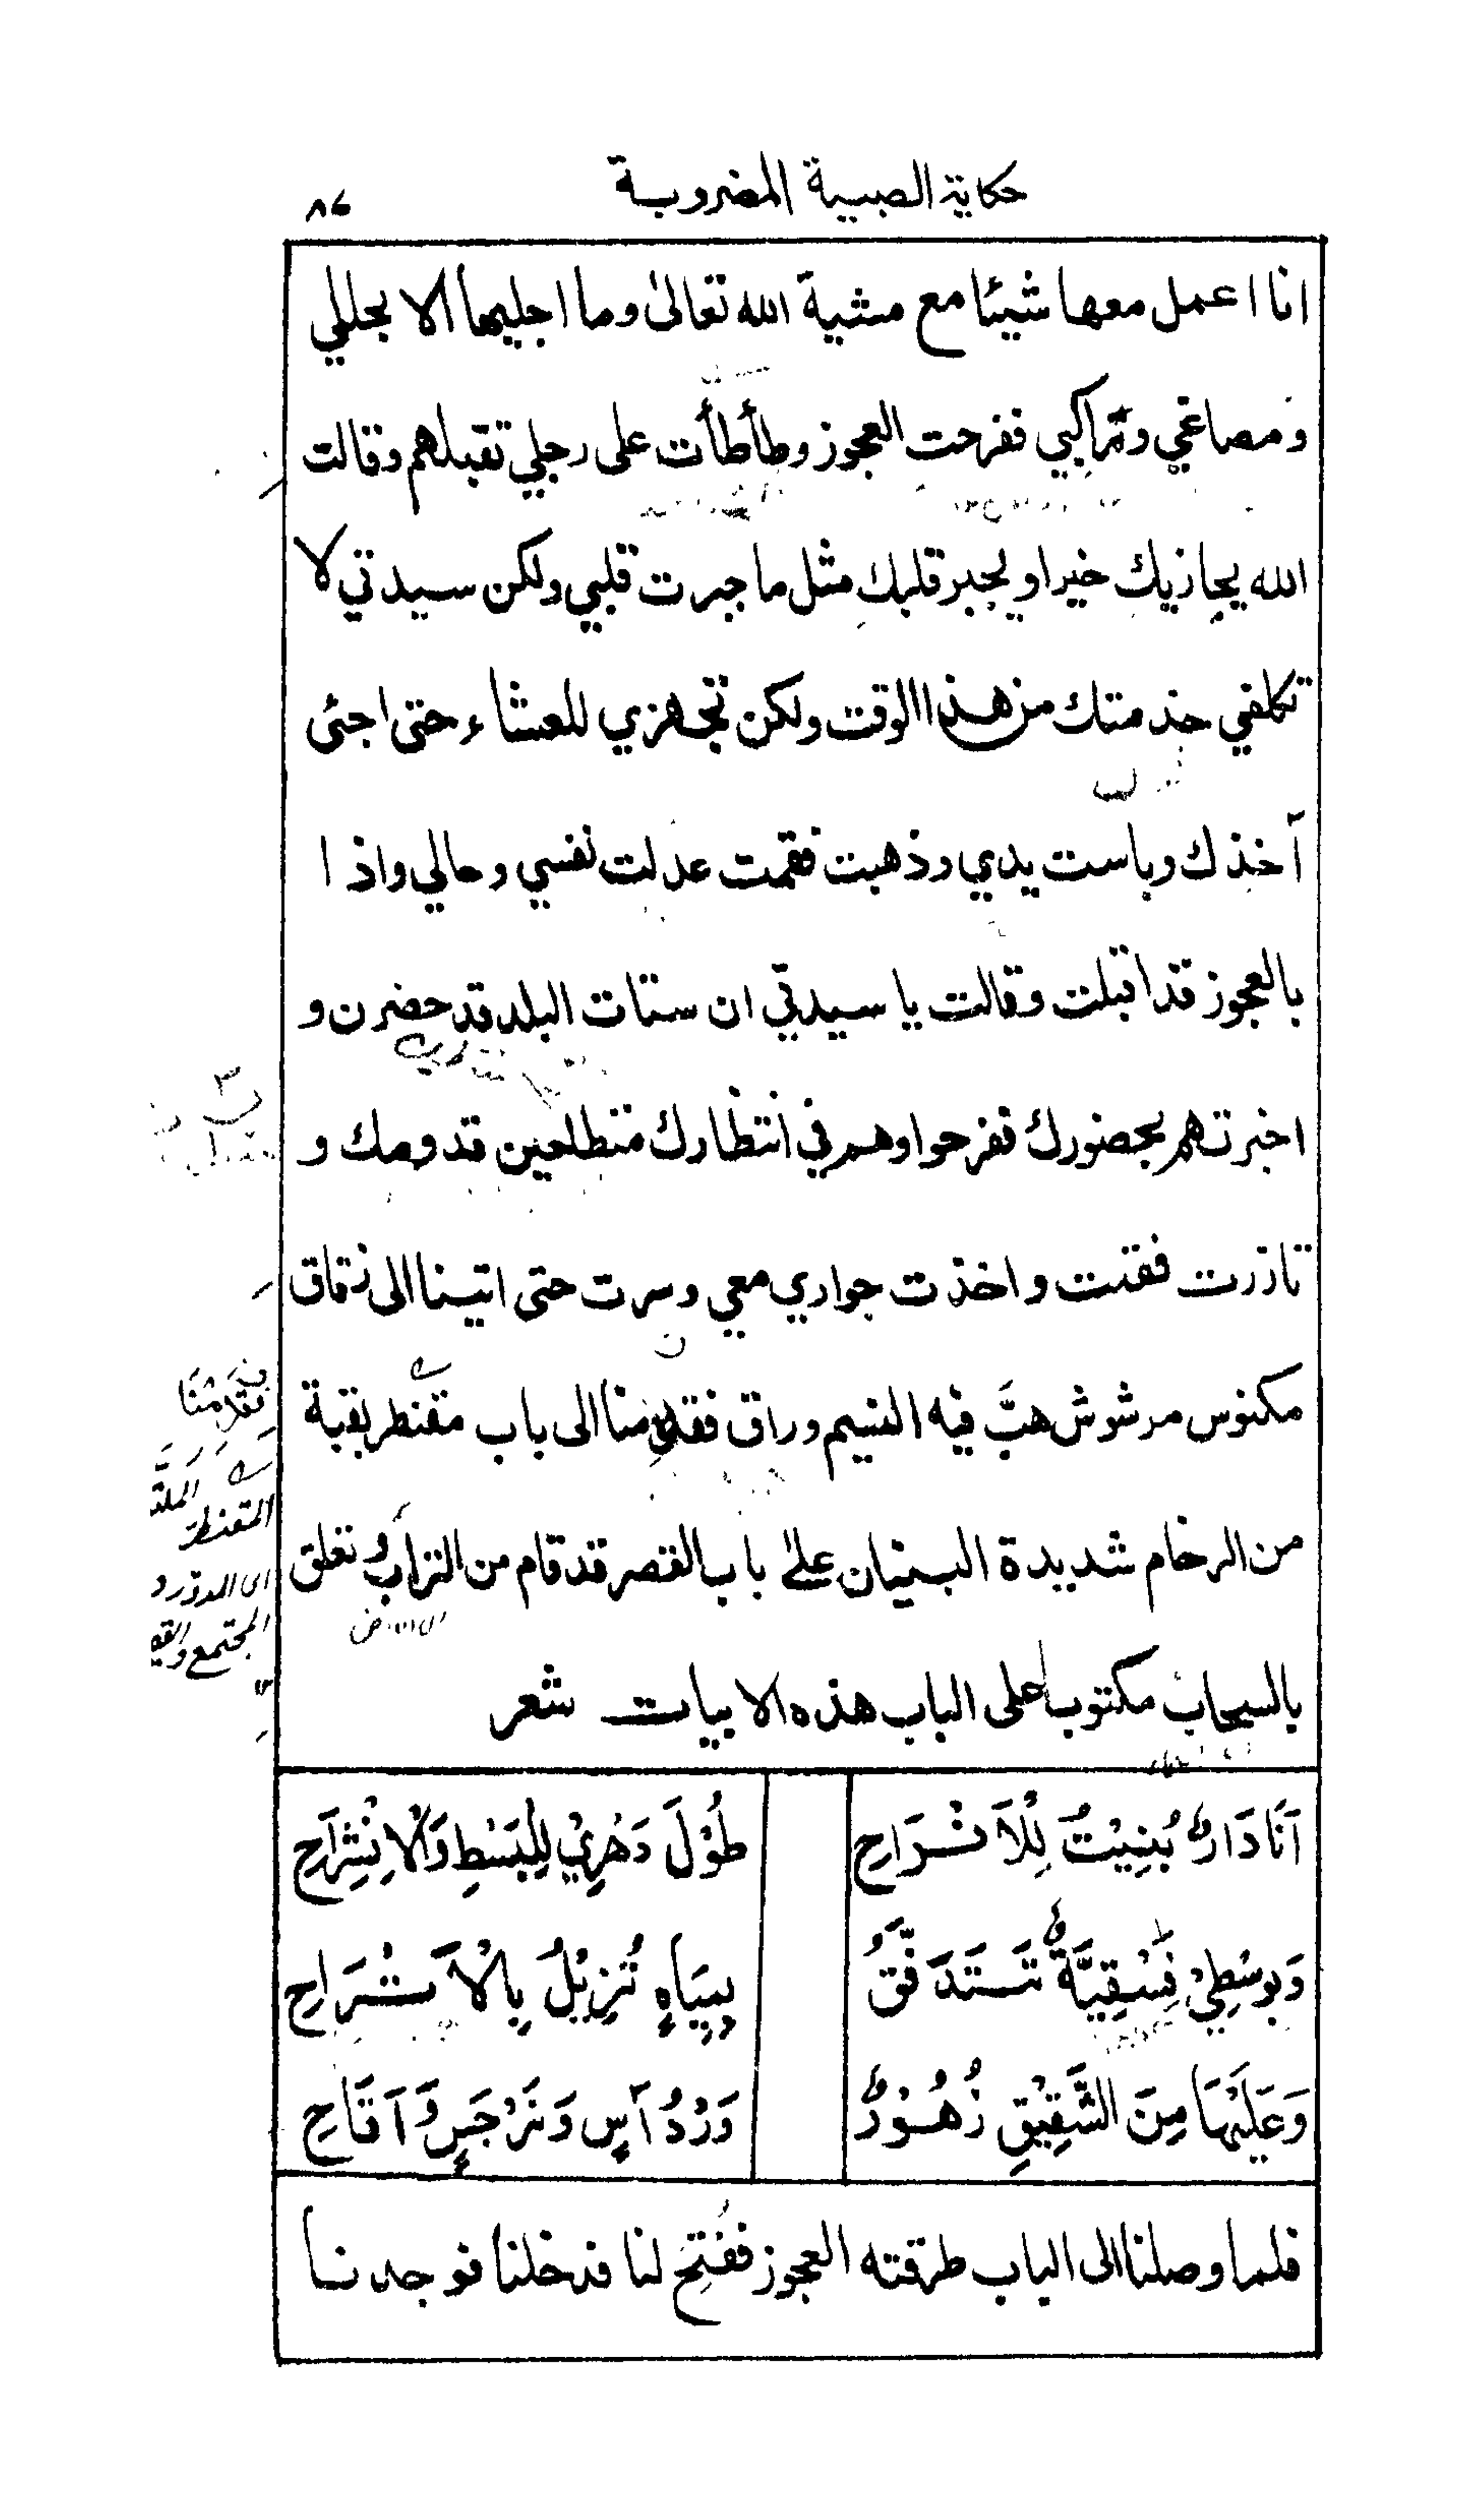 حكاية الصبية المضروبة ٨٧
انا اعمل معها شيئا مع مشية الله تعالى وما اجليها الا بحليي
ومصاغي وتراكيبي ففرحت العجوز وطأطأت على رجلي تقبلهم وقالت
الله يجازيك خيرا ويجبر قلبك مثل ما جبرت قلبي ولكن سيدتي لا
تكلفي خدمتك من هذا الوقت ولكن تجهزي للعشاء حتى اجئ
آخذك وباست يدي وذهبت فقمت عدلت نفسي وحالي واذا
بالعجوز قد اقبلت وقالت يا سيدتي ان ستات البلد قد حضرن و
اخبرتهم بحضورك ففرحوا وهم في انتظارك متطلعين قدومك و
تازرت فقمت واخذت جواري معي وسرت حتى اتينا الى زقاق
مكنوس مرشوش هبَّ فيه النسيم وراق فقدمنا الى باب مقنطر بقبة
من الرخام شديدة البنيان على باب القصر قد قام من التراب وتعلق
بالسحاب مكتوبا على الباب هذه الابيات شعر
اَنَا دَارٌ بُنِيْتُ لِلْاَفْرَاحِ طُوْلَ دَهْرِيْ لِلْبَسْطِ وَالْاِنْشِرَاحِ
وَبِوَسْطِيْ فَسْقِيَّةٌ تَتَدَفَّقُ بِمِيَاهٍ تُزِيْلُ بِالْاَتْرَاحِ
وَعَلَيْهَا مِنَ الشَّقِيْقِ زُهُوْرٌ وَرْدُ آسٍ وَنَرْجَسٍ وَ اَقَاحِ
فلما وصلنا الى الباب طرقته العجوز ففُتِحَ لنا فدخلنا فوجدنا